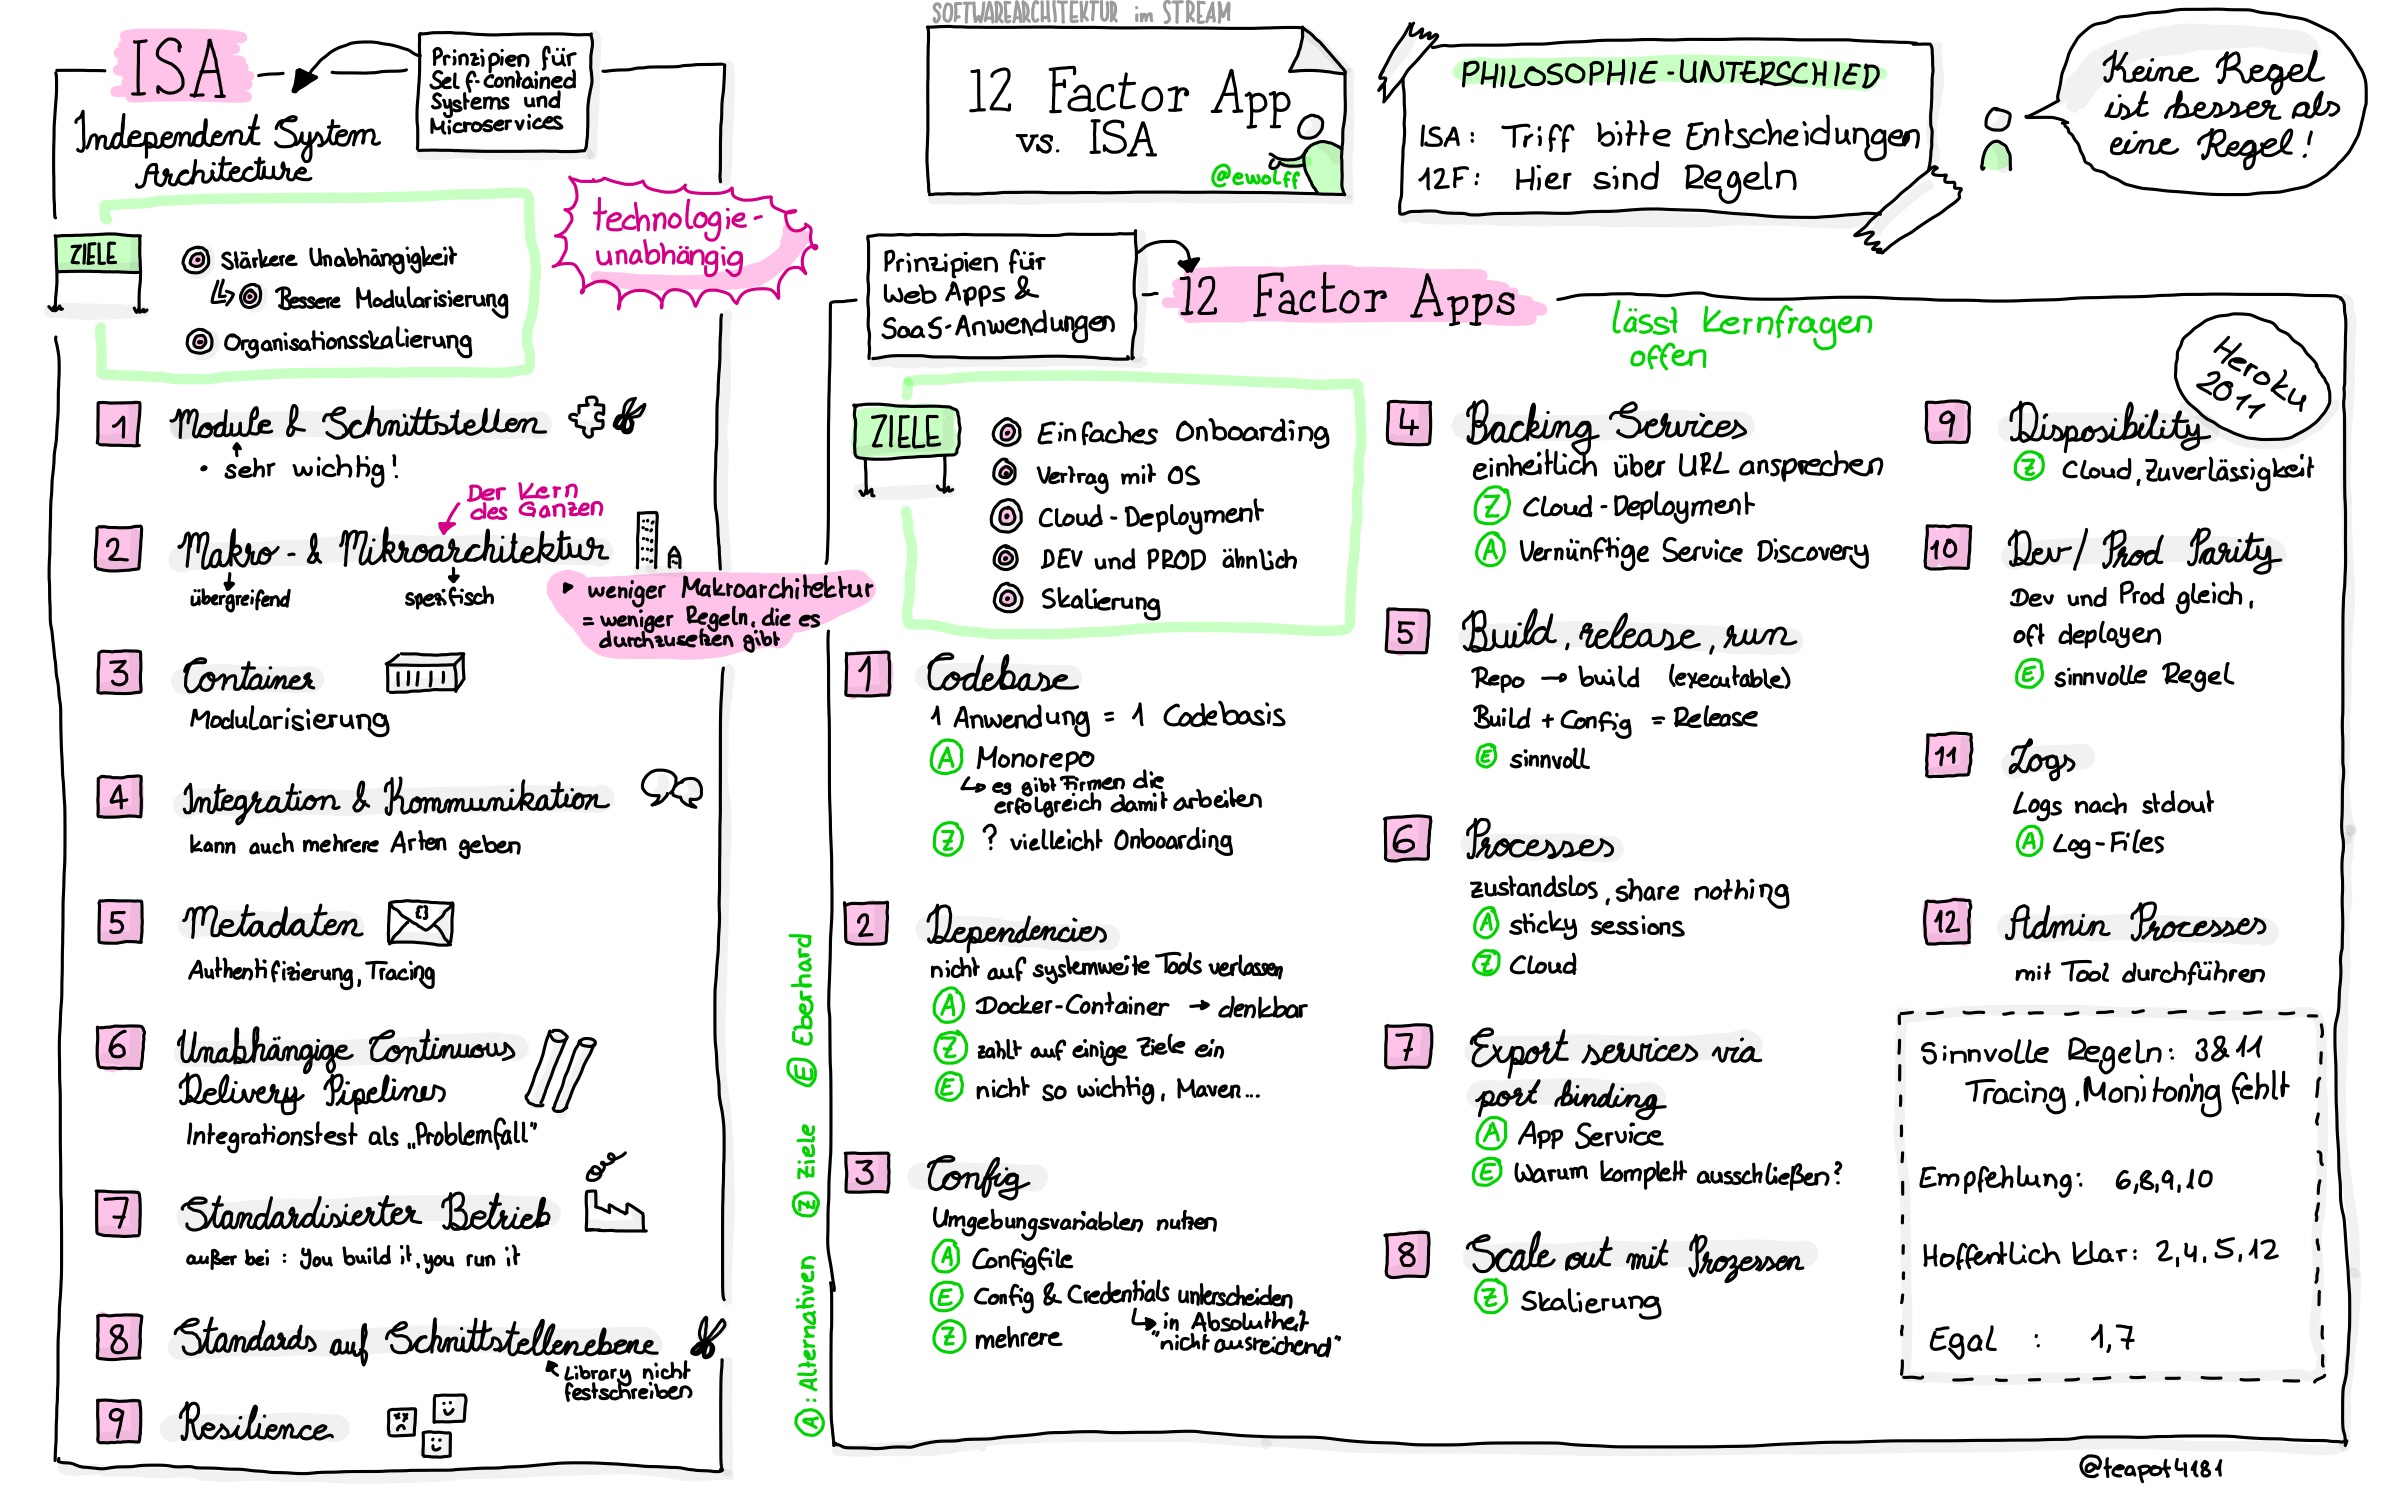 SOFTWAREARCHITEKTUR im STREAM
12 Factor App
vs. ISA
@ewolff
PHILOSOPHIE-UNTERSCHIED
ISA: Triff bitte Entscheidungen
12F: Hier sind Regeln
Keine Regel
ist besser als
eine Regel!
ISA
Independent System
Architecture
Prinzipien für
Self-contained
Systems und
Microservices
technologie-
unabhängig
ZIELE
Stärkere Unabhängigkeit
Bessere Modularisierung
Organisationsskalierung
1 Module & Schnittstellen
• sehr wichtig!
Der Kern
des Ganzen
2 Makro- & Mikroarchitektur
übergreifend
spezifisch
weniger Makroarchitektur
= weniger Regeln, die es
durchzusetzen gibt
3 Container
Modularisierung
4 Integration & Kommunikation
kann auch mehrere Arten geben
5 Metadaten
{}
Authentifizierung, Tracing
6 Unabhängige Continuous
Delivery Pipelines
Integrationstest als „Problemfall"
7 Standardisierter Betrieb
außer bei: you build it, you run it
8 Standards auf Schnittstellenebene
Library nicht
festschreiben
9 Resilience
Prinzipien für
Web Apps &
SaaS-Anwendungen
12 Factor Apps
lässt Kernfragen
offen
Heroku
2011
ZIELE
Einfaches Onboarding
Vertrag mit OS
Cloud-Deployment
DEV und PROD ähnlich
Skalierung
A: Alternativen Z Ziele E Eberhard
1 Codebase
1 Anwendung = 1 Codebasis
A Monorepo
es gibt Firmen die
erfolgreich damit arbeiten
Z ? vielleicht Onboarding
2 Dependencies
nicht auf systemweite Tools verlassen
A Docker-Container → denkbar
Z zahlt auf einige Ziele ein
E nicht so wichtig, Maven...
3 Config
Umgebungsvariablen nutzen
A Configfile
E Config & Credentials unterscheiden
in Absolutheit
"nicht ausreichend"
Z mehrere
4 Backing Services
einheitlich über URL ansprechen
Z Cloud-Deployment
A Vernünftige Service Discovery
5 Build, release, run
Repo → build (executable)
Build + Config = Release
E sinnvoll
6 Processes
zustandslos, share nothing
A sticky sessions
Z Cloud
7 Export services via
port binding
A App Service
E Warum komplett ausschließen?
8 Scale out mit Prozessen
Z Skalierung
9 Disposibility
Z Cloud, Zuverlässigkeit
10 Dev/Prod Parity
Dev und Prod gleich,
oft deployen
E sinnvolle Regel
11 Logs
Logs nach stdout
A Log-Files
12 Admin Processes
mit Tool durchführen
Sinnvolle Regeln: 3&11
Tracing, Monitoring fehlt
Empfehlung: 6,8,9,10
Hoffentlich klar: 2,4,5,12
Egal : 1,7
@teapot4181